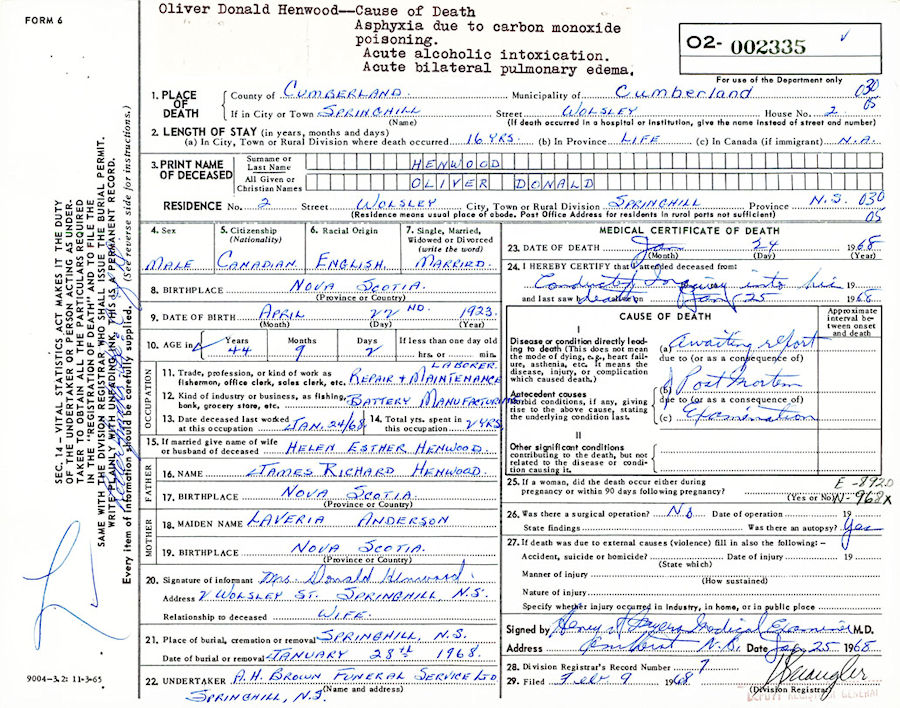 FORM 6
Oliver Donald Henwood--Cause of Death
Asphyxia due to carbon monoxide
poisoning.
Acute alcoholic intoxication.
Acute bilateral pulmonary edema.
02- 002335
For use of the Department only
SEC. 14 — VITAL STATISTICS ACT MAKES IT THE DUTY
OF THE UNDERTAKER OR PERSON ACTING AS UNDER-
TAKER TO OBTAIN ALL THE PARTICULARS REQUIRED
IN THE "REGISTRATION OF DEATH" AND TO FILE THE
SAME WITH THE DIVISION REGISTRAR WHO SHALL ISSUE THE BURIAL PERMIT.
WRITE PLAINLY WITH UNFADING INK, THIS IS A PERMANENT RECORD.
Every item of information should be carefully supplied. (See reverse side for instructions.)
1. PLACE OF DEATH
County of CUMBERLAND Municipality of Cumberland 030
If in City or Town SPRINGHILL Street WOLSLEY House No. 2 05
(Name) (If death occurred in a hospital or institution, give the name instead of street and number)
2. LENGTH OF STAY (in years, months and days)
(a) In City, Town or Rural Division where death occurred 16 YRS. (b) In Province LIFE (c) In Canada (if immigrant) N.A.
3. PRINT NAME OF DECEASED
Surname or Last Name HENWOOD
All Given or Christian Names OLIVER DONALD
RESIDENCE No. 2 Street WOLSLEY City, Town or Rural Division SPRINGHILL Province N.S. 030
(Residence means usual place of abode. Post Office Address for residents in rural parts not sufficient) 05
4. Sex 5. Citizenship (Nationality) 6. Racial Origin 7. Single, Married, Widowed or Divorced (write the word)
MALE CANADIAN ENGLISH MARRIED
8. BIRTHPLACE NOVA SCOTIA
(Province or Country)
9. DATE OF BIRTH APRIL 22ND. 1923
(Month) (Day) (Year)
10. AGE in Years Months Days If less than one day old
44 9 2 hrs. or min.
OCCUPATION
11. Trade, profession, or kind of work as LABORER
fishermen, office clerk, sales clerk, etc. REPAIR + MAINTENANCE
12. Kind of industry or business, as fishing, bank, grocery store, etc. BATTERY
13. Date deceased last worked at this occupation JAN. 24/68 14. Total yrs. spent in this occupation 2 YRS
15. If married give name of wife or husband of deceased HELEN ESTHER HENWOOD
FATHER
16. NAME JAMES RICHARD HENWOOD
17. BIRTHPLACE NOVA SCOTIA
(Province or Country)
MOTHER
18. MAIDEN NAME LAVERIA ANDERSON
19. BIRTHPLACE NOVA SCOTIA
(Province or Country)
20. Signature of informant Mrs. Donald Henwood
Address 2 WOLSLEY ST. SPRINGHILL, N.S.
Relationship to deceased WIFE
21. Place of burial, cremation or removal SPRINGHILL, N.S.
Date of burial or removal JANUARY 28th 1968.
22. UNDERTAKER A.H. BROWN FUNERAL SERVICE LTD
(Name and address)
SPRINGHILL, N.S
9004-3.2: 11-3-65
MEDICAL CERTIFICATE OF DEATH
23. DATE OF DEATH Jan 24 1968
(Month) (Day) (Year)
24. I HEREBY CERTIFY that I attended deceased from:
Conducted Inquiry into his 19
and last saw death Jan 25 1968
CAUSE OF DEATH
Approximate interval between onset and death
I
Disease or condition directly leading to death (This does not mean the mode of dying, e.g., heart failure, asthenia, etc. it means the disease, injury, or complication which caused death.)
(a) Awaiting report
due to (or as a consequence of)
Antecedent causes
Morbid conditions, if any, giving rise to the above cause, stating the underlying condition last.
(b) Post Mortem
due to (or as a consequence of)
(c) Examination
II
Other significant conditions contributing to the death, but not related to the disease or condition causing it.
25. If a woman, did the death occur either during E-892.0
pregnancy or within 90 days following pregnancy? (Yes or No) N-968X
26. Was there a surgical operation? No Date of operation 19
State findings Was there an autopsy? Yes
27. If death was due to external causes (violence) fill in also the following: -
Accident, suicide or homicide? Date of injury 19
(State which)
Manner of injury
(How sustained)
Nature of injury
Specify whether injury occurred in industry, in home, or in public place
Signed by Medical Examiner M.D.
Address Amherst N.S. Date Jan 25 1968
28. Division Registrar's Record Number 7
29. Filed Feb 9 1968
(Division Registrar)
DEPUTY REGISTRAR GENERAL